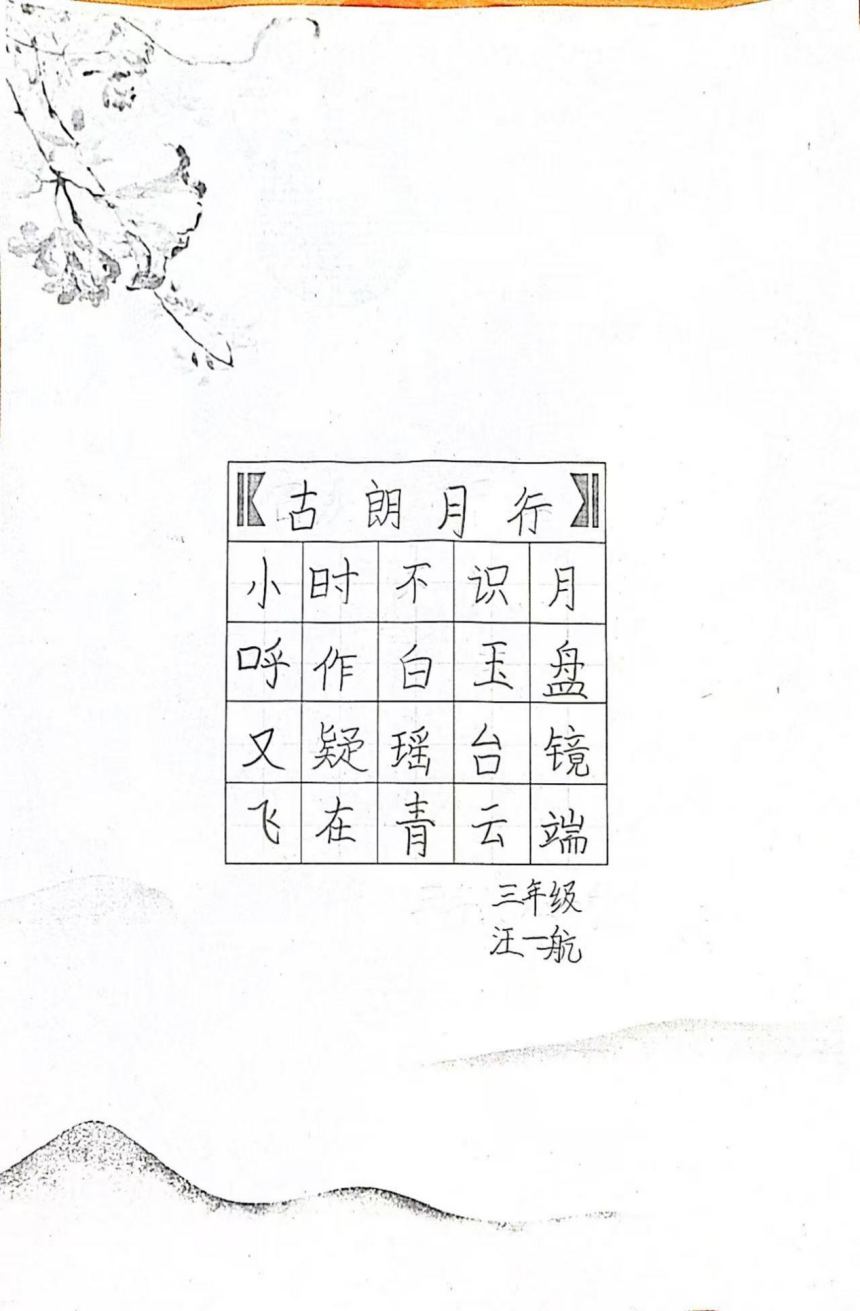 古朗月行
小时不识月
呼作白玉盘
又疑瑶台镜
飞在青云端
三年级
汪一航